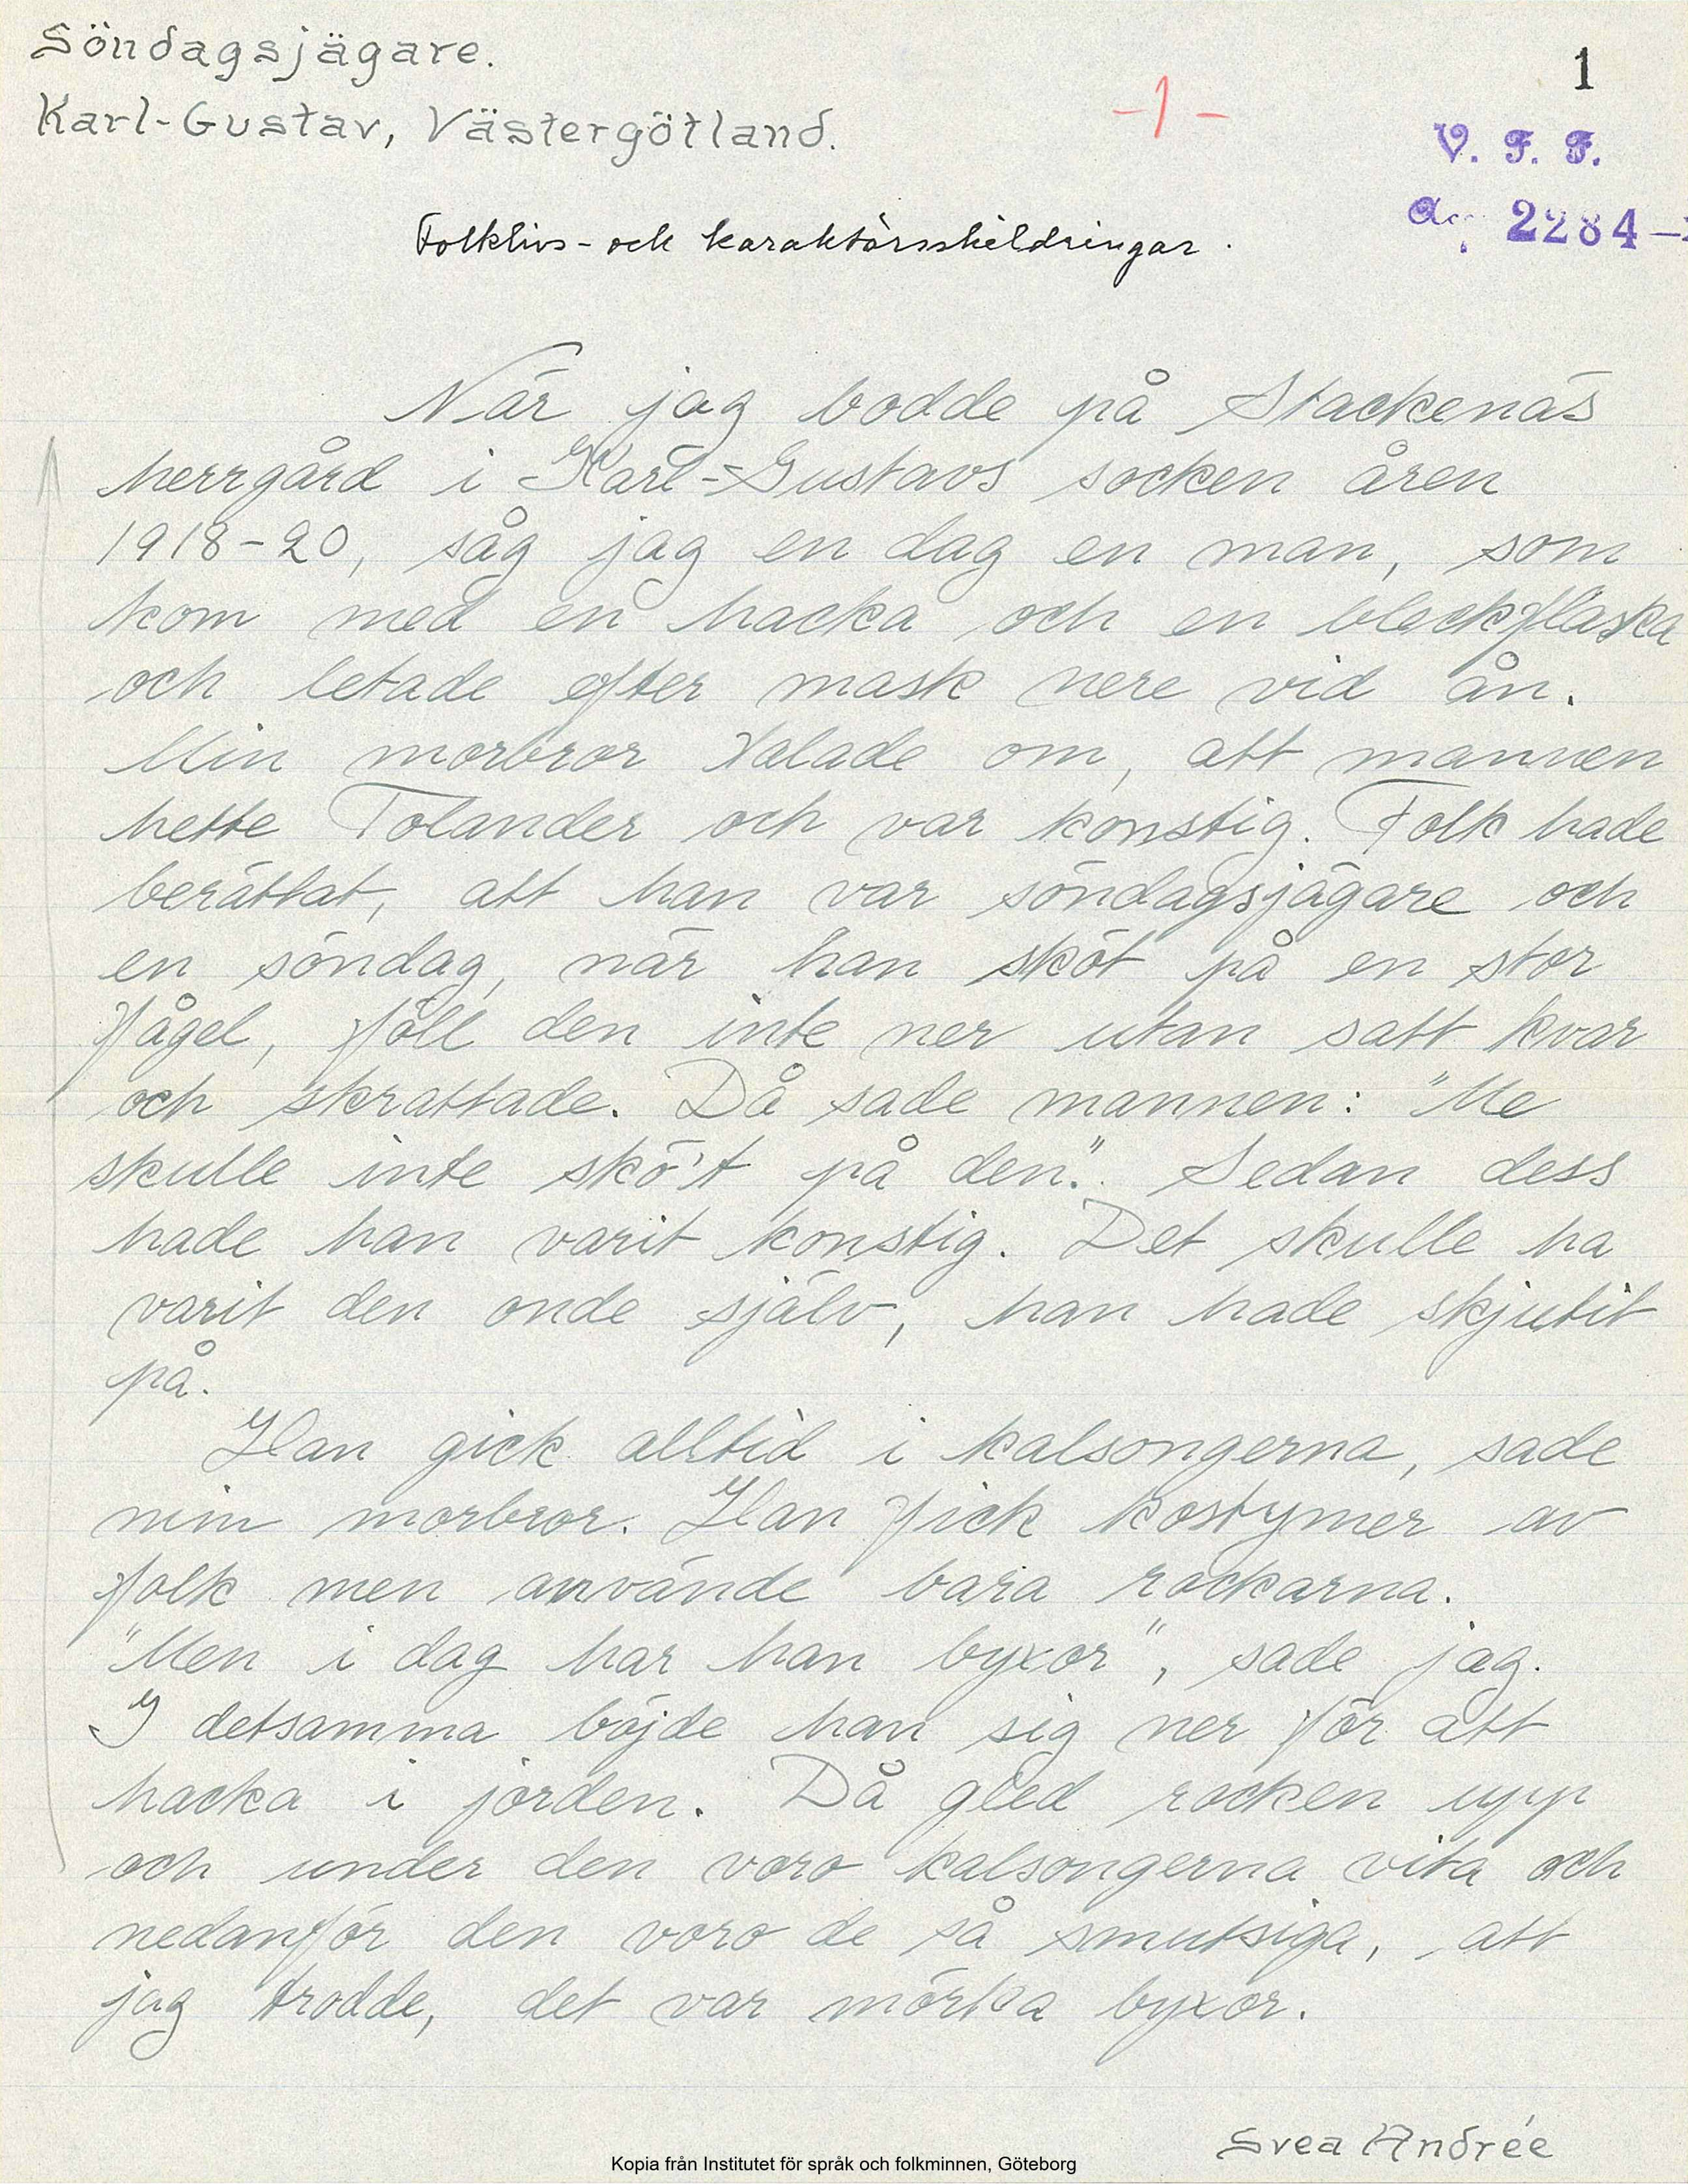 Söndagsjägare.
1
Karl-Gustav, Västergötland.
-1-
V. F. F.
2284
Folklivs- och karaktärsskildringar.
När jag bodde på Stackenäs
herrgård i Karl-Gustavs socken åren
1918-20, såg jag en dag en man, som
kom med en hacka och en bleckflaska
och letade efter mask nere vid ån.
Min morbror talade om, att mannen
hette Tolander och var konstig. Folk hade
berättat, att han var söndagsjägare och
en söndag, när han sköt på en stor
fågel, föll den inte ner utan satt kvar
och skrattade. Då sade mannen: "Me
skulle inte skö't på den." Sedan dess
hade han varit konstig. Det skulle ha
varit den onde själv, han hade skjutit
på.
Han gick alltid i kalsongerna, sade
min morbror. Han fick kostymer av
folk men använde bara rockarna.
"Men i dag har han byxor", sade jag.
I detsamma böjde han sig ner för att
hacka i jorden. Då gled rocken upp
och under den voro kalsongerna vita och
nedanför den voro de så smutsiga, att
jag trodde, det var mörka byxor.
Svea Andrée
Kopia från Institutet för språk och folkminnen, Göteborg